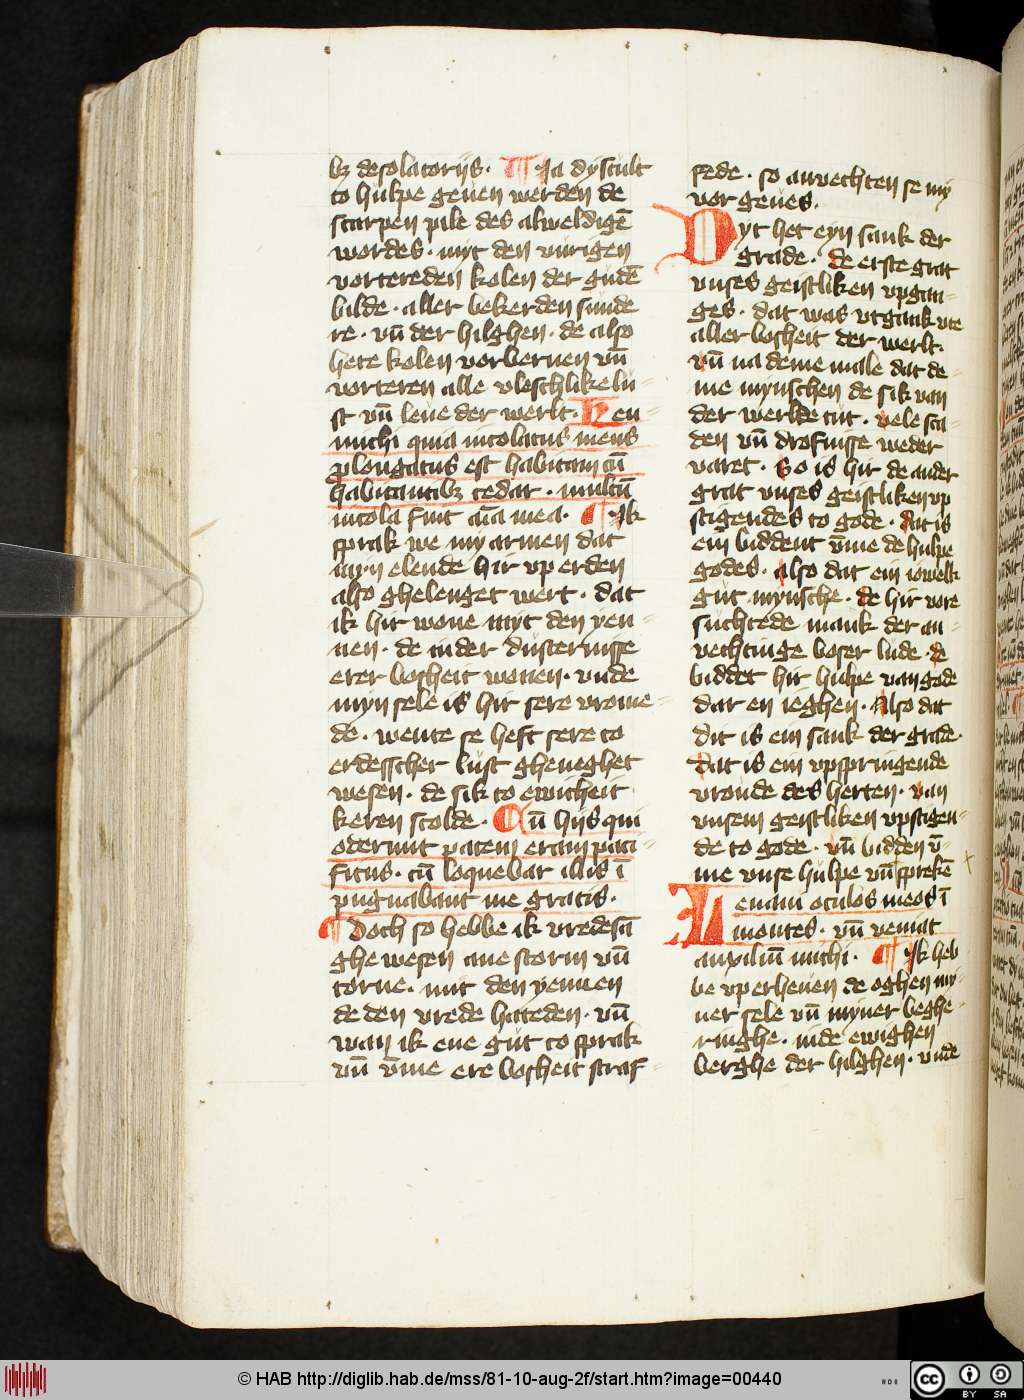 bꝫ desolatorijs. ¶ Ja dy scult
to hulpe geuen werden de
scarpen pile des alweldigē
wordes. myt den vurigen
vortereden kolen der gudē
bilde. aller bekerden sunde
re. vn̄ der hilghen. de also
hete kolen vorbernen vn̄
vorteren alle vleschlike lu-
st vn̄ leue der werlt. Heu
michi quia incolatus meus
ꝓlongatus est habitaui cū
habitantibꝫ cedar. multū
incola fuit aīa mea. ¶ Ik
sprak we my armen dat
myn elende hir vp erden
also ghelenget wert. dat
ik hir wone myt den yen-
nen. de in der dusternisse
erer bosheit wonen. vnde
myn sele is hir sere vrome-
de. wente se heft sere to
erdesscher lust gheneghet
wesen. de sik to ewicheit
keren scolde. Cū hijs qui
oderunt pacem eram paci-
ficus. cū loquebar illis ī
pugnabant me gratis.
¶ Doch so hebbe ik vredesā
ghe wesen ane storm vn̄
torne. mit den yennen
de den vrede hateden. vn̄
wan ik ene gůt to sprak
vn̄ vm̄e ere bosheit straf
fede. so anvechten se my
vor geues.
Dyt het eyn sank der
grade. de erste grat
vnses geistliken vpgan-
ges. dat was vtgank vte
aller bosheit der werlt.
vn̄ na deme male dat de-
me mynschen de sik van
der werlde tut. vele sca-
den vn̄ drofnisse weder
varet. So is hir de ander
grat vnses geistliken vp
stigendes to gode. dat is
ein biddent vm̄e de hulpe
godes. also dat ein iowelk
gůt mynsche. de hir vore
suchtede mank der an-
vechtinge boser lude. de
biddet hir hulpe van gode
dar en ieghen. Also dat
dit is ein sank der grade.
dat is ein vpspringende
vroude des herten. van
vnsem geistliken vpstigen-
de to gode. vn̄ bidden v̄-
me vnse hulpe vn̄ sprekē
Leuaui oculos meos ī
montes. vn̄ veniat
auxiliū michi. ¶ Ik heb
be vperheuen de oghen my-
ner sele vn̄ myner beghe-
ringhe. in de ewighen
berghe der hilghen. vnde
© HAB http://diglib.hab.de/mss/81-10-aug-2f/start.htm?image=00440
cc BY SA